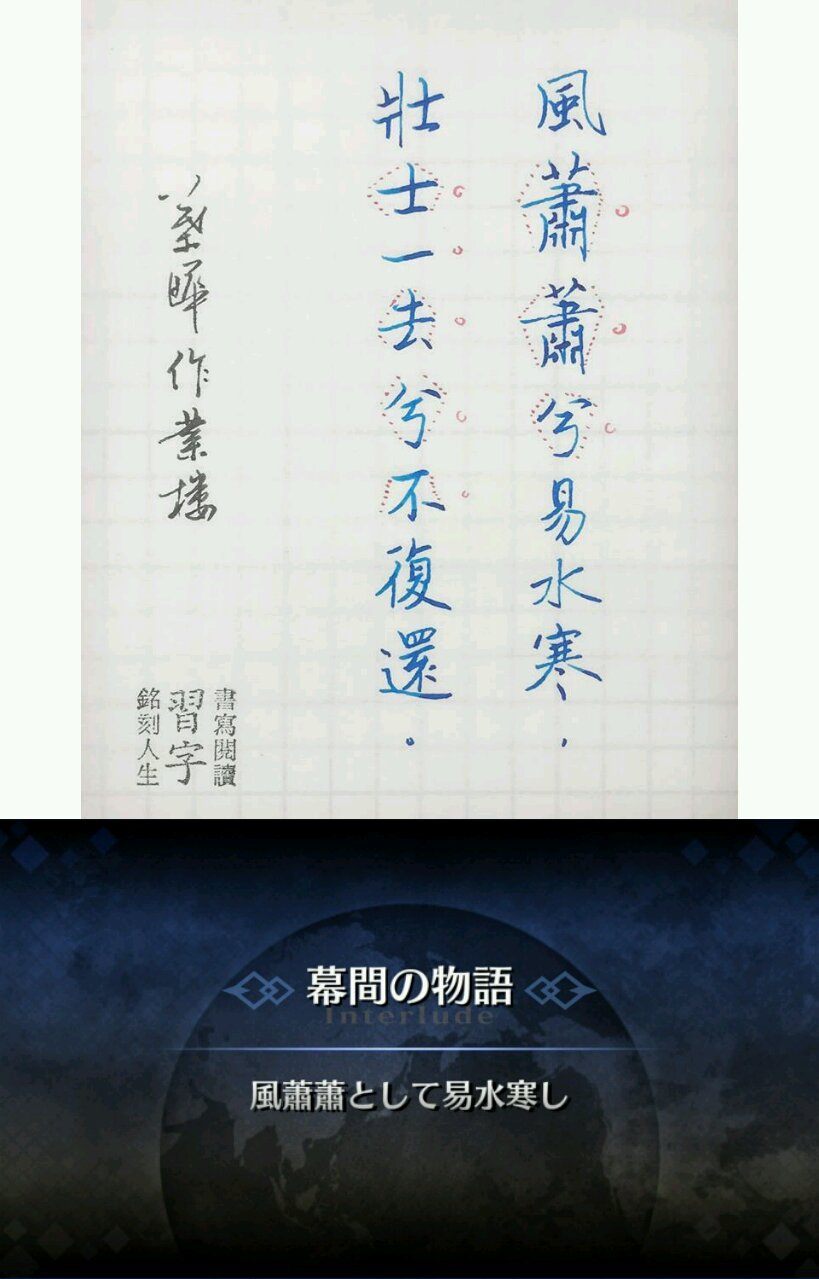 風蕭蕭兮易水寒，
壯士一去兮不復還。
作業樓
書寫閱讀
習字
銘刻人生
幕間の物語
Interlude
風蕭蕭として易水寒し